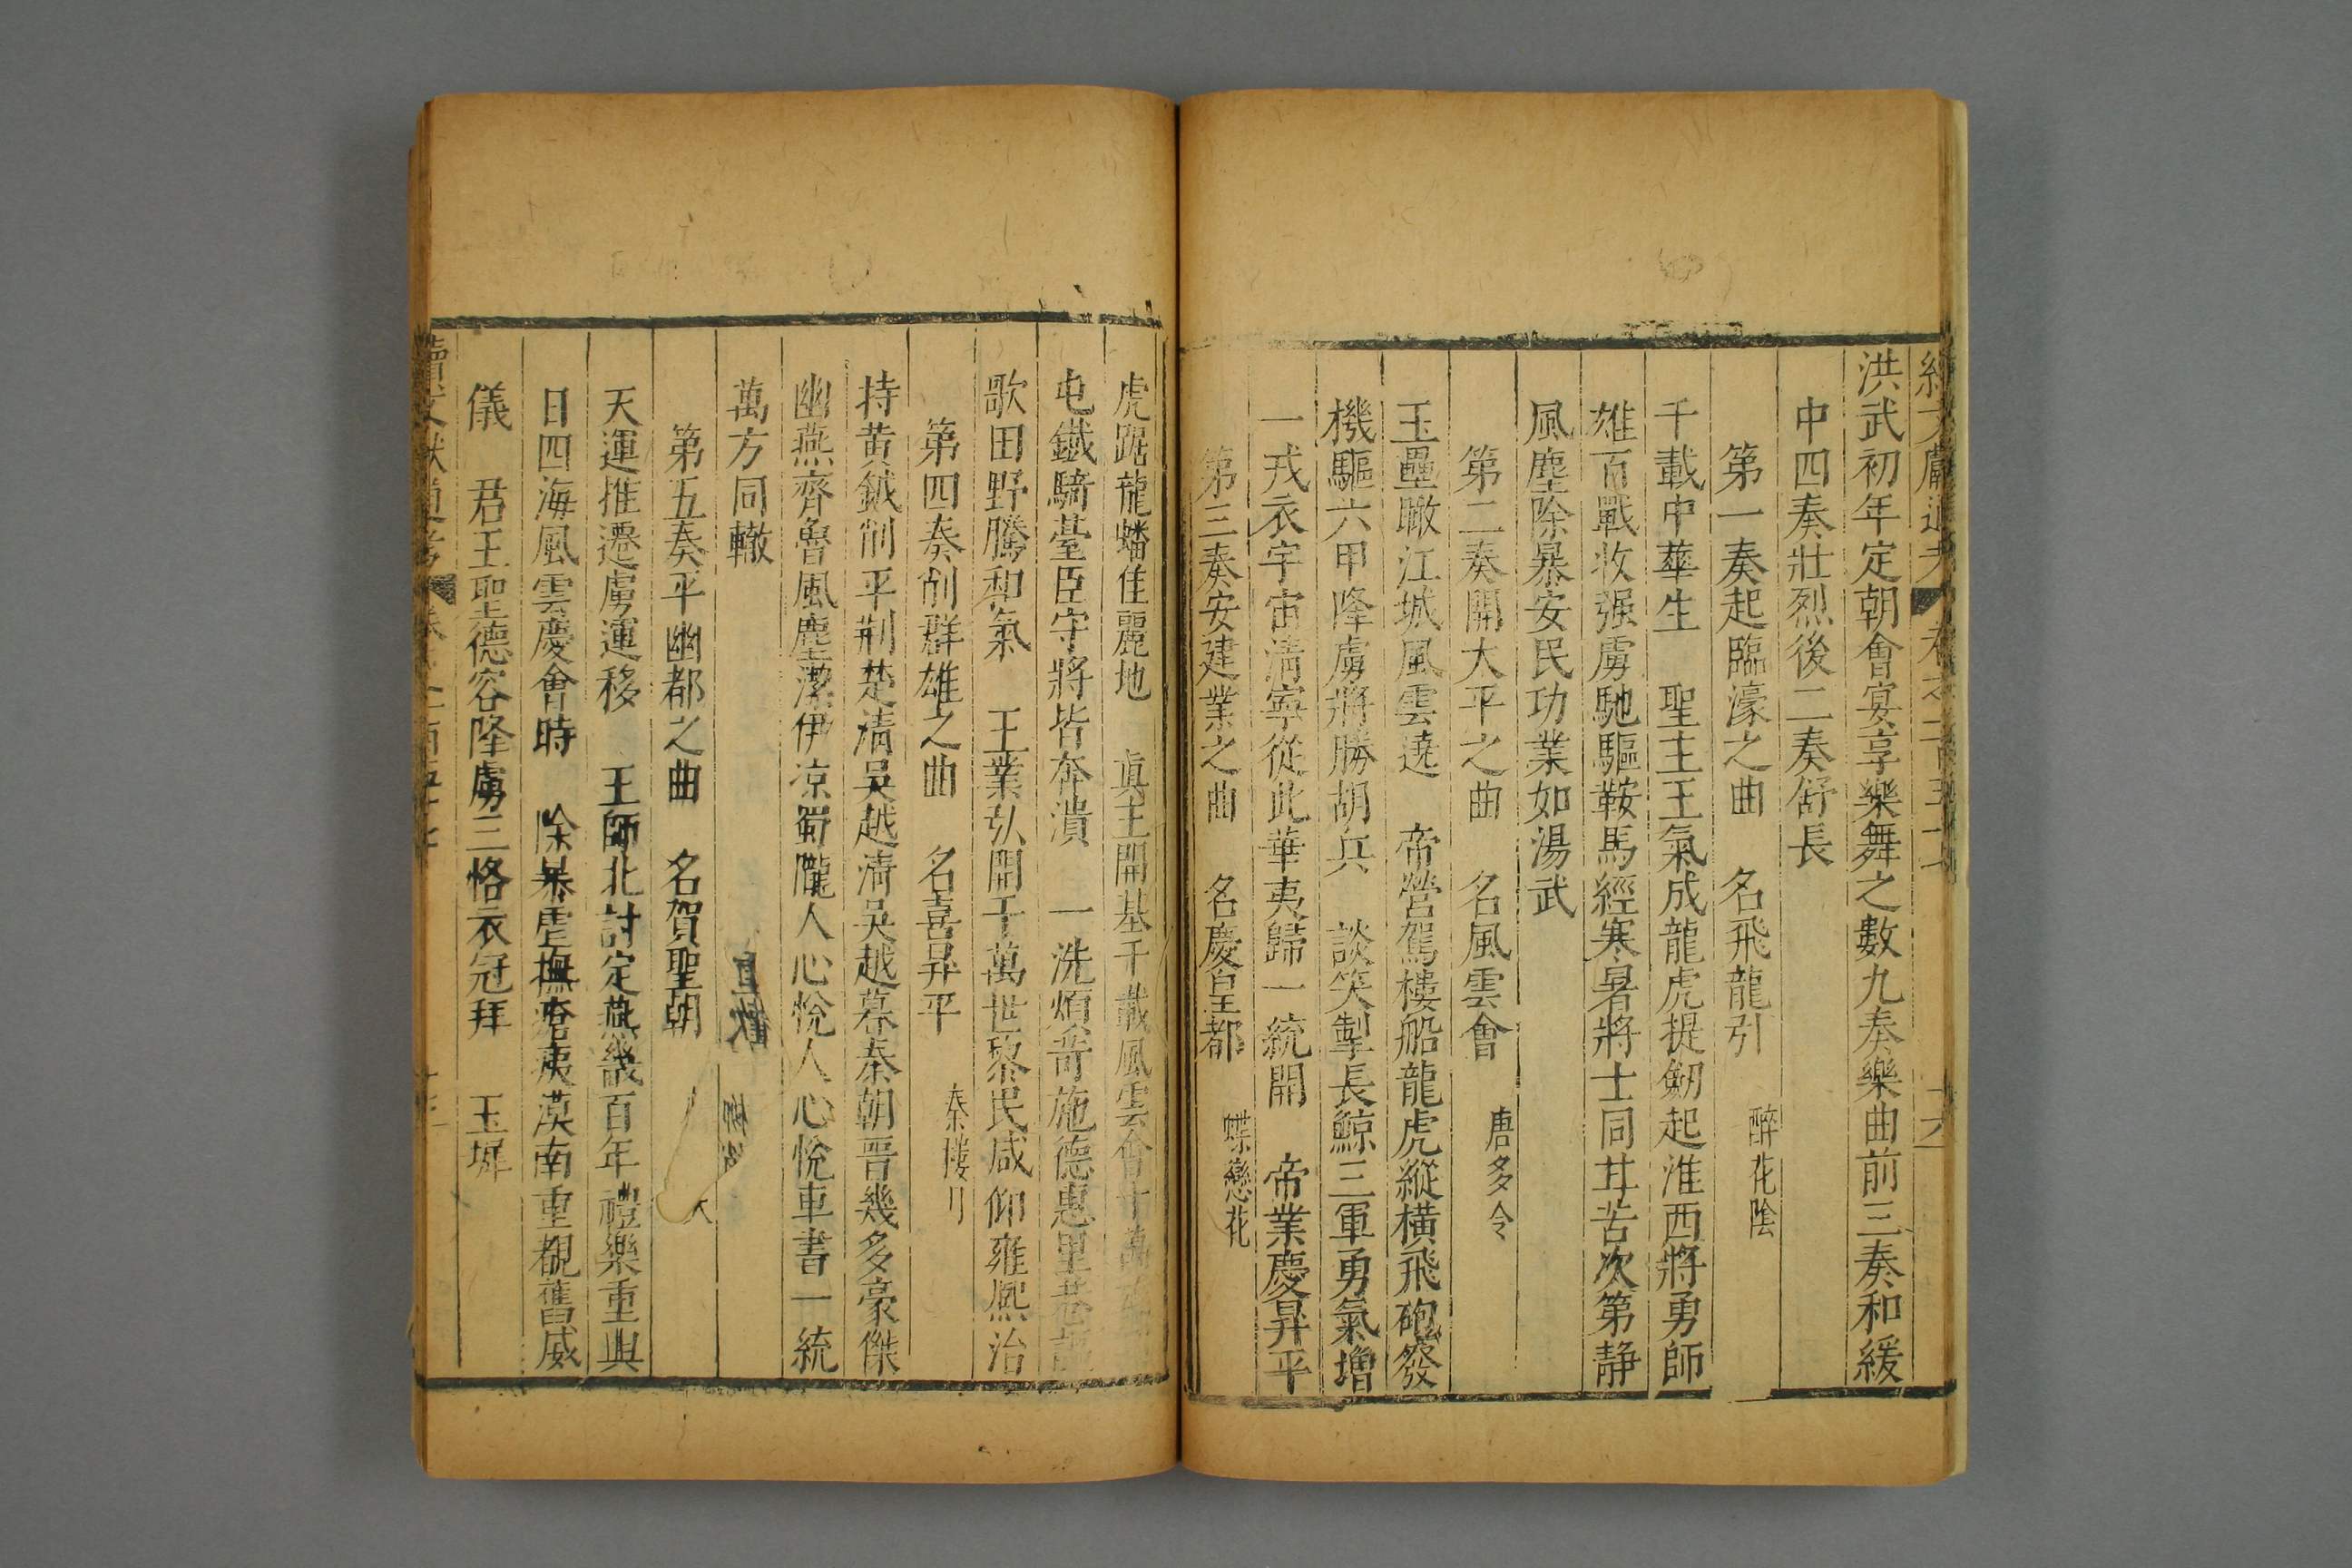 洪武初年定朝會宴享樂舞之數九奏樂曲前三奏和緩
中四奏壯烈後二奏舒長
第一奏起臨濠之曲 名飛龍引 醉花陰
千載中華生 聖主王氣成龍虎提劒起淮西將勇師
雄百戰收强虜馳驅鞍馬經寒暑將士同甘苦次第靜
風塵除暴安民功業如湯武
第二奏開太平之曲 名風雲會 唐多令
玉壘瞰江城風雲遶 帝營駕樓船龍虎縱橫飛砲發
機驅六甲降虜將勝胡兵 談笑掣長鯨三軍勇氣增
一戎衣宇宙淸寧從此華夷歸一統開 帝業慶昇平
第三奏安建業之曲 名慶皇都 蝶戀花
虎踞龍蟠佳麗地 眞主開基千載風雲會十萬
屯鐵騎臺臣守將皆奔潰 一洗煩苛施德惠里巷謳
歌田野騰和氣 王業弘開千萬世黎民咸仰雍熙治
第四奏削群雄之曲 名喜昇平 秦樓月
持黃鉞削平荆楚淸吳越淸吳越暮秦朝晉幾多豪傑
幽燕齊魯風塵潔伊凉蜀隴人心悅人心悅車書一統
萬方同轍
第五奏平幽都之曲 名賀聖朝
天運推遷虜運移 王師北討定燕畿百年禮樂重興
日四海風雲慶會時 除暴虐撫瘡痍漠南重覩舊威
儀 君王聖德容降虜三恪衣冠拜 玉墀